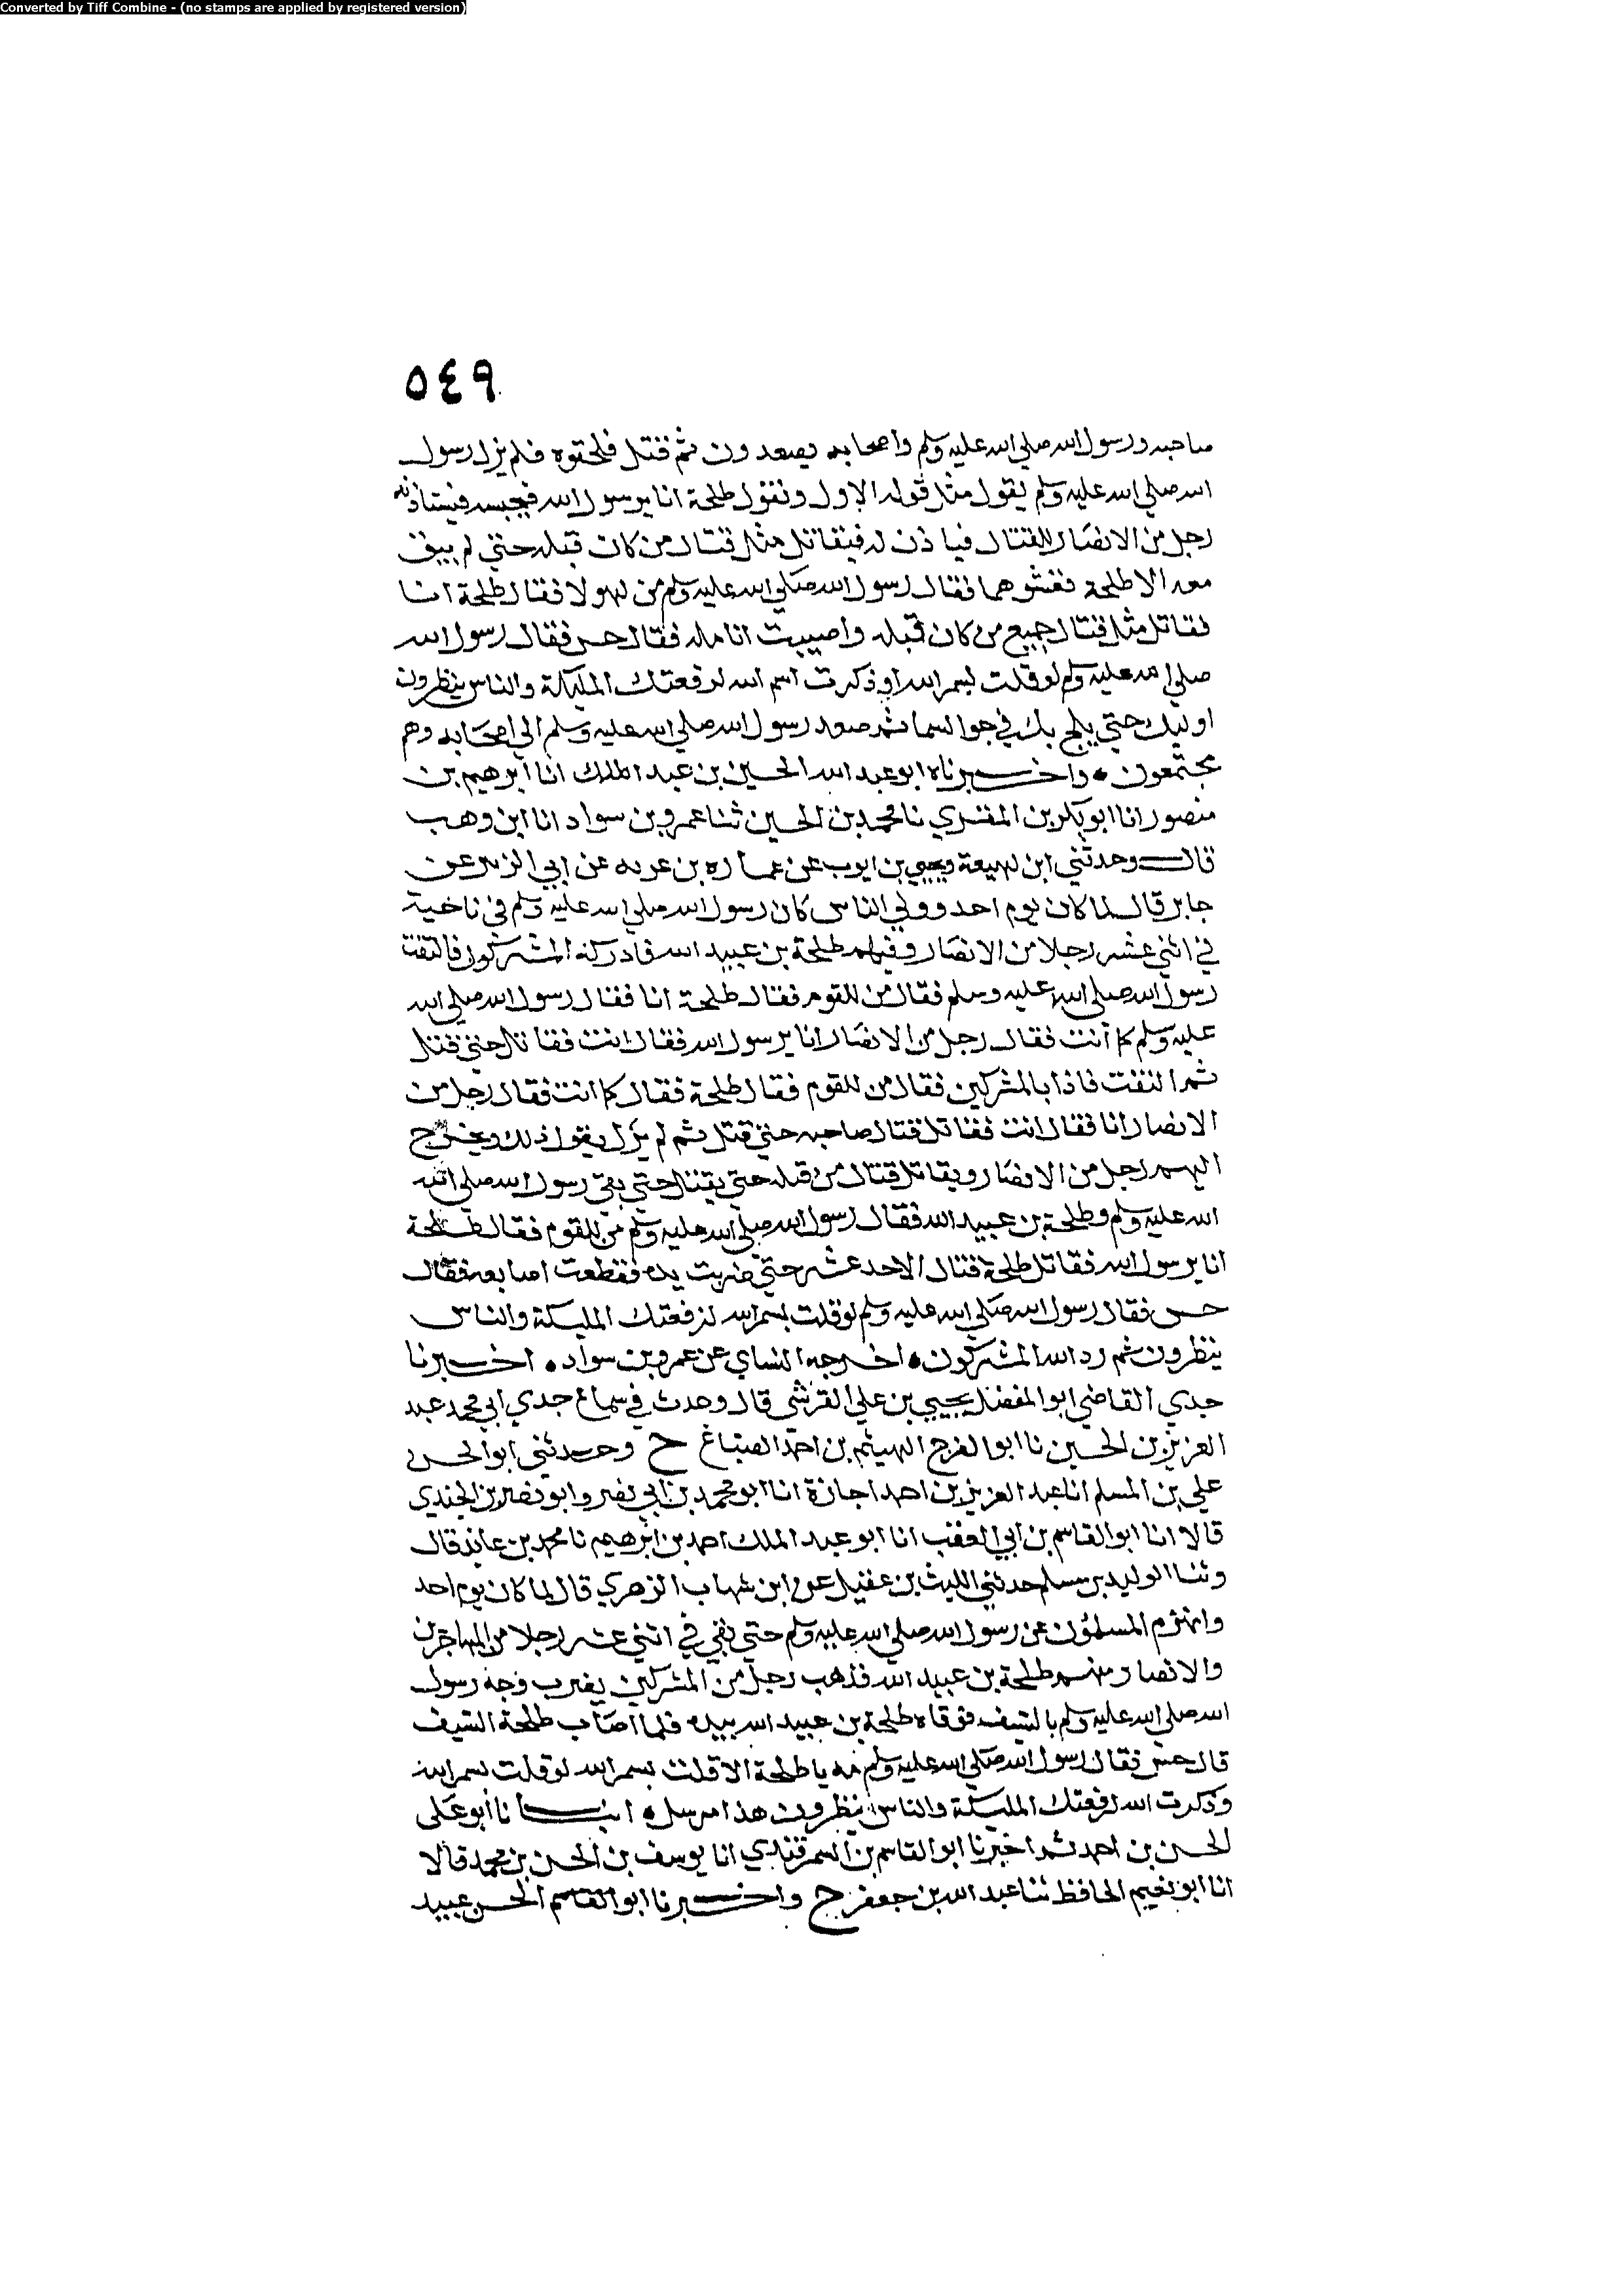 Converted by Tiff Combine - (no stamps are applied by registered version)
٥٤٩
صاحبه ورسول الله صلي الله عليه وسلم واصحابه يصعدون ثم قتل فلحقوه فلم يزل رسول
الله صلي الله عليه وسلم يقول مثل قوله الاول ويقول طلحة انا يرسول الله فيحبسه فيستاذنه
رجل من الانصار للقتال فياذن له فيقاتل مثل قتال من كان قبله حتي لم يبق
معه الا طلحة فغشوهما فقال رسول الله صلي الله عليه وسلم من لهولا فقال طلحة انا
فقاتل مثل قتال جميع من كان قبله واصيبت انامله فقال حس فقال رسول الله
صلي الله عليه وسلم لو قلت بسم الله او ذكرت اسم الله لرفعتك المليكة والناس ينظرون
اوليك حتي يلج بك في جو السما ثم صعد رسول الله صلي الله عليه وسلم الي اصحابه وهم
مجتمعون ٥ واخبرناه ابو عبد الله الحسين بن عبد الملك انا ابرهيم بن
منصور انا ابو بكر بن المقري نا محمد بن الحسين ثنا عمرو بن سواد انا ابن وهب
قال وحدثني ابن لهيعة ويحيي بن ايوب عن عماره بن غزيه عن ابي الزبير عن
جابر قال لما كان يوم احد وولي الناس كان رسول الله صلي الله عليه وسلم في ناحية
في اثني عشر رجلا من الانصار وفيهم طلحة بن عبيد الله فادركه المشركون فالتفت
رسول الله صلي الله عليه وسلم فقال من للقوم فقال طلحة انا فقال رسول الله صلي الله
عليه وسلم كما انت فقال رجل من الانصار انا يرسول الله فقال انت فقاتل حتي قتل
ثم التفت فاذا بالمشركين فقال من للقوم فقال طلحة فقال كما انت فقال رجل من
الانصار انا فقال انت فقاتل قتال صاحبه حتي قتل ثم لم يزل يقول ذلك ويخرج
اليهم رجل من الانصار ويقاتل قتال من قبله حتي يقتل حتي بقي رسول الله صلي الله
الله عليه وسلم وطلحة بن عبيد الله فقال رسول الله صلي الله عليه وسلم من للقوم فقال طلحة
انا يرسول الله فقاتل طلحة قتال الاحد عشر حتي ضربت يده فقطعت اصابعه فقال
حس فقال رسول الله صلي الله عليه وسلم لو قلت بسم الله لرفعتك المليكة والناس
ينظرون ثم رد الله المشركون ٥ اخرجه النساي عن عمرو بن سواد ٥ اخبرنا
جدي القاضي ابو المفضل يحيي بن علي القرشي قال وجدت في سماع جدي ابي محمد عبد
العزيز بن الحسين نا ابو الفرج الهيثم بن احمد الصباغ ح وحدثني ابو الحسن
علي بن المسلم انا عبد العزيز بن احمد اجازة انا ابو محمد بن ابي نصر وابو نصر بن الجندي
قالا انا ابو القاسم بن ابي العقب انا ابو عبد الملك احمد بن ابرهيم نا محمد بن عايذ قال
وثنا الوليد بن مسلم حدثني الليث بن عقيل عن ابن شهاب الزهري قال لما كان يوم احد
وانهزم المسلمون عن رسول الله صلي الله عليه وسلم حتي بقي في اثني عشر رجلا من المهاجرين
والانصار منهم طلحة بن عبيد الله فذهب رجل من المشركين يضرب وجه رسول
الله صلي الله عليه وسلم بالسيف فوقاه طلحة بن عبيد الله بيده فلما اصاب طلحة السيف
قال حس فقال رسول الله صلي الله عليه وسلم مه يا طلحة الا قلت بسم الله لو قلت بسم الله
وذكرت الله لرفعتك المليكة والناس ينظرون هذا مرسل ٥ انبانا ابو علي
الحسن بن احمد ثم اخبرنا ابو القاسم بن السمرقندي انا يوسف بن الحسن بن محمد قالا
انا ابو نعيم الحافظ ثنا عبد الله بن جعفر ح واخبرنا ابو القاسم الحسن عبيد